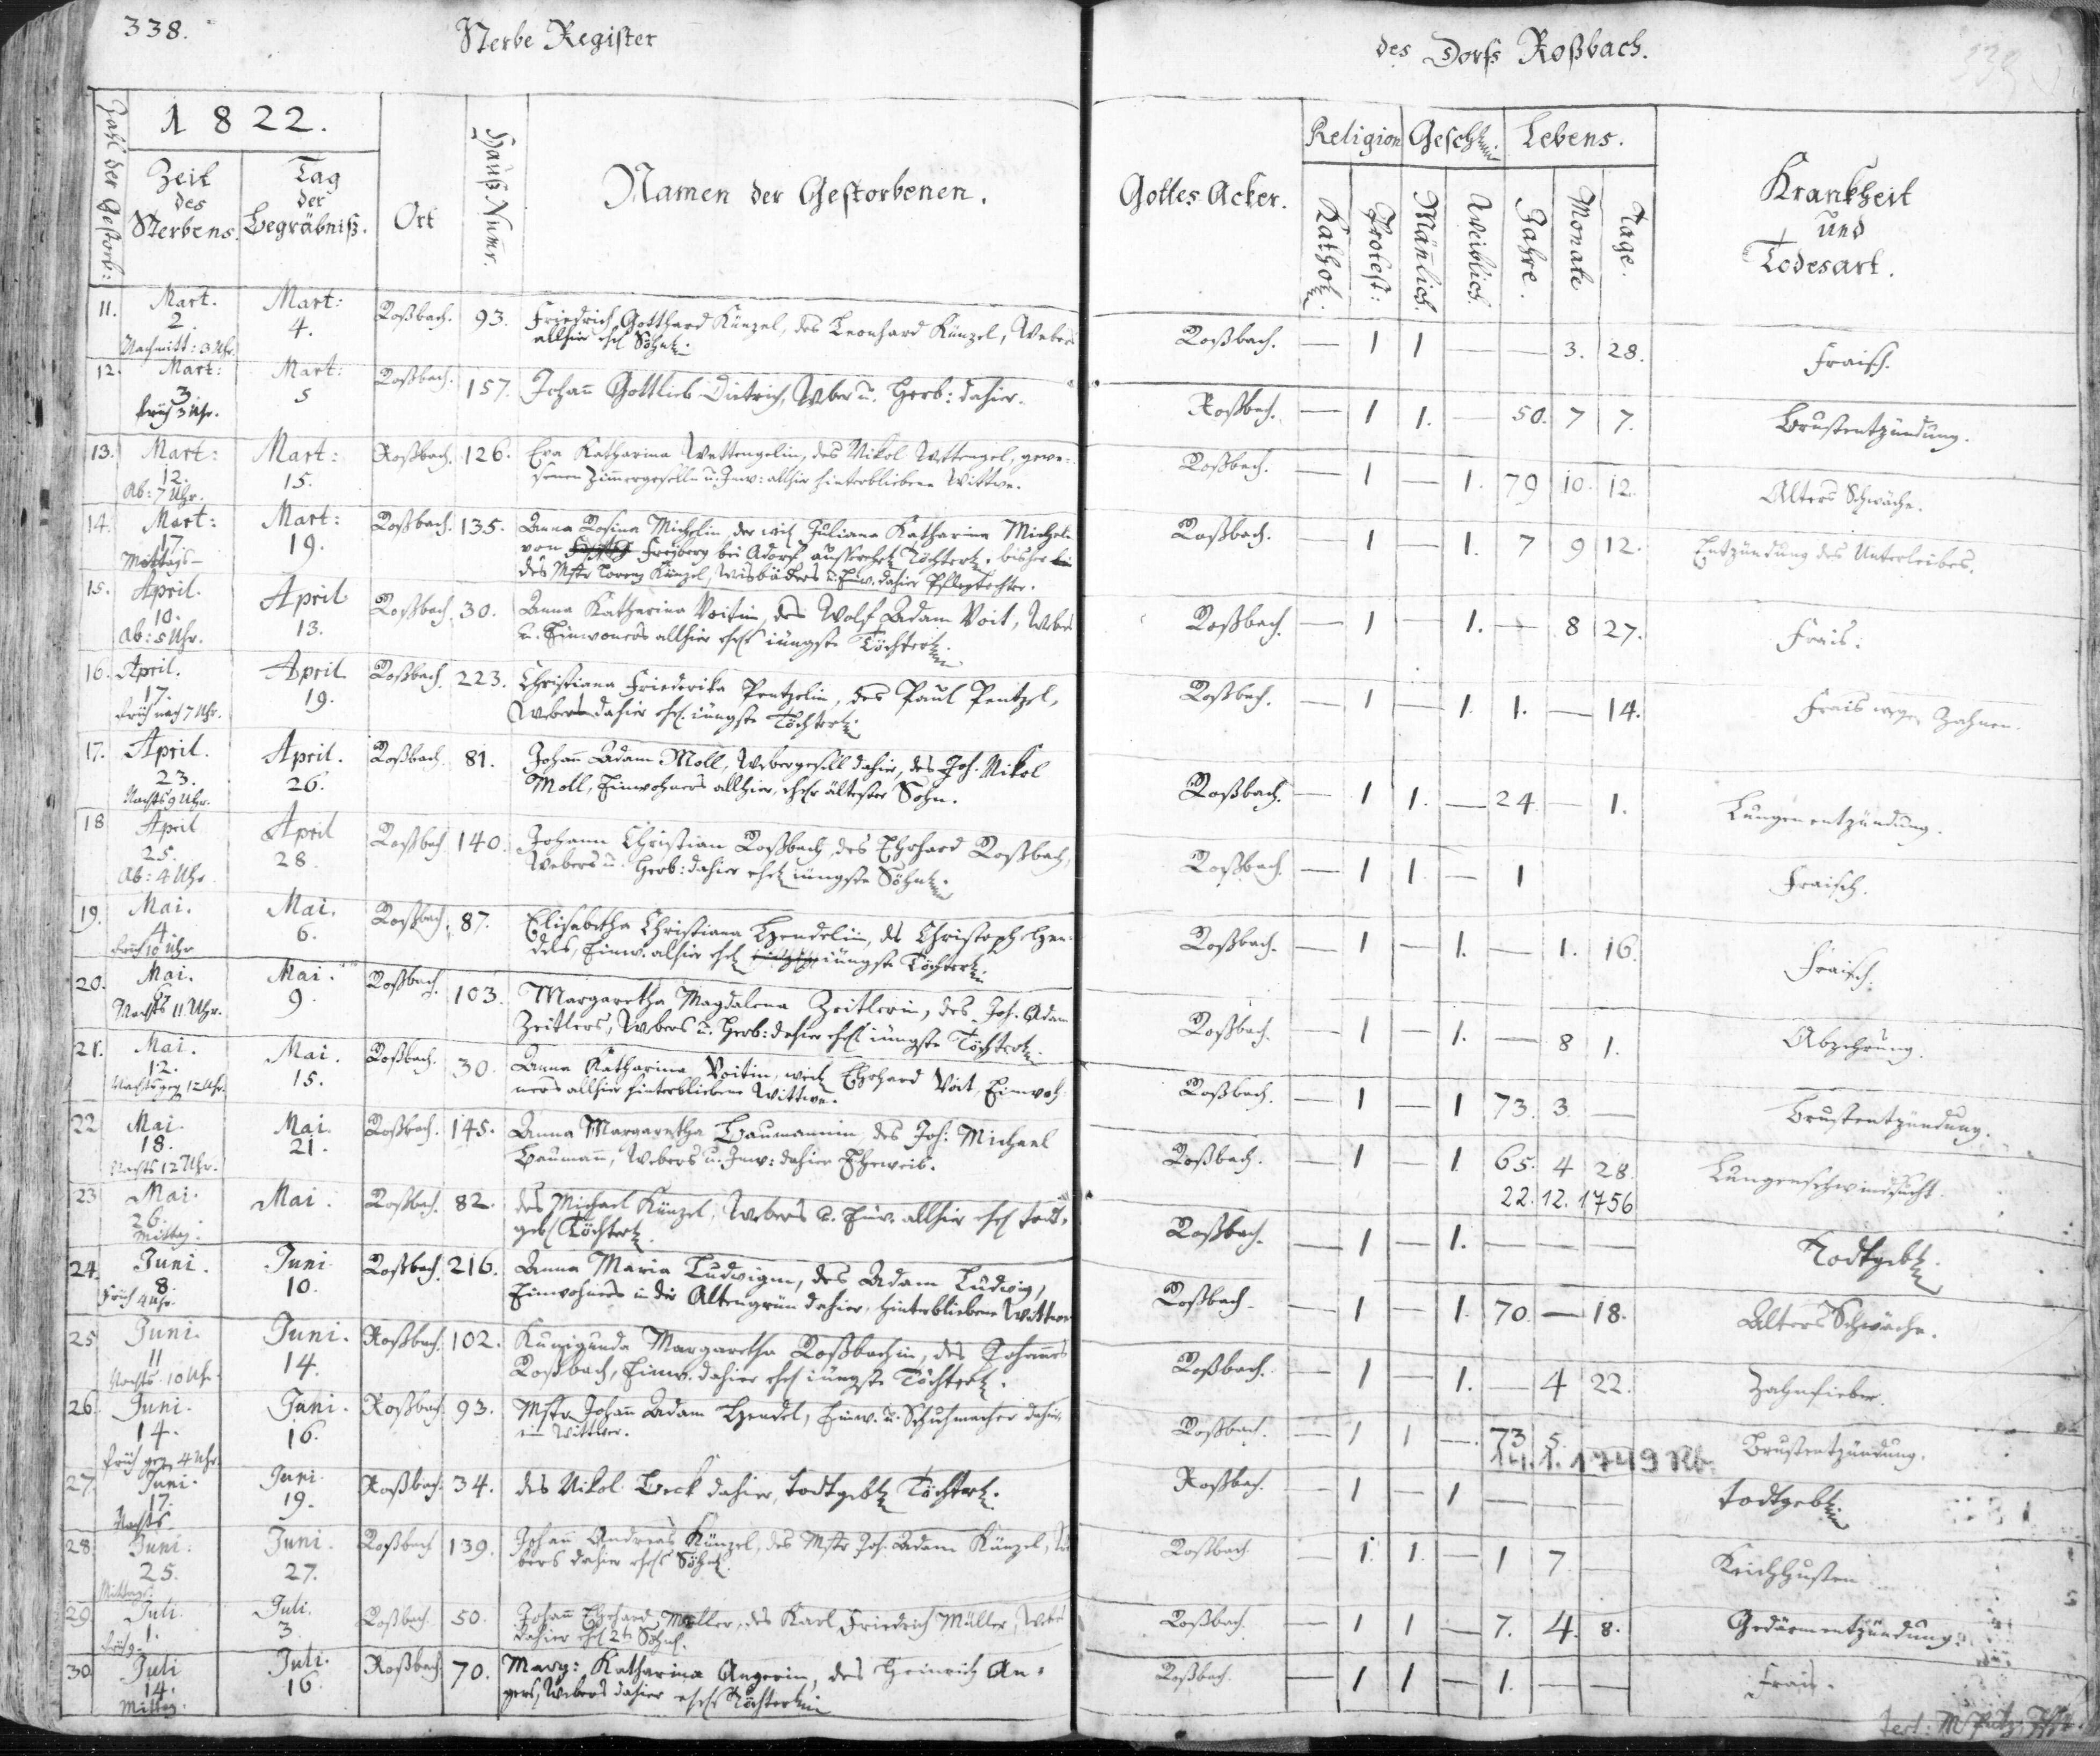 338.
Sterbe Register
des Dorfs Roßbach.
339
Zahl der Gestorb:
1822.
Zeit des Sterbens.
Tag der Begräbniß.
Ort
Hauß Numr.
Namen der Gestorbenen.
Gottes Acker.
Religion
Kathol.
Protest:
Geschl.
Mäñlich.
Weiblich.
Lebens.
Jahre.
Monate
Tage.
Krankheit und Todesart.
11. Mart. 2. Nachmitt: 3 Uhr. Mart: 4. Roßbach. 93. Friedrich Gotthard Künzel, des Leonhard Künzel, Webers
allhier ehel Söhnl. Roßbach. — 1 1 — — 3. 28. Fraisch.
12. Mart: 3. früh 3 Uhr. Mart: 5 Roßbach. 157. Johañ Gottlieb Dietrich, Weber u. Herb: dahier. Roßbach. — 1 1. — 50. 7 7. Brustentzündung.
13. Mart: 12. Ab: 7 Uhr. Mart: 15. Roßbach. 126. Eva Katharina Wettengelin, des Nikol Wettengel, gewe-
senen Zimmergesellen u. Inw: allhier hinterbliebene Wittwe. Roßbach. — 1 — 1. 79 10. 12. Alters Schwäche.
14. Mart: 17 Mittags — Mart: 19. Roßbach. 135. Anna Rosina Michelin, der Juliana Katharina Michel
von Freyberg bei Adorf Töchterl. bisher
des Mstr Lorenz Künzel, Weisbäckers u. Einw. dahier Pflegtochter. Roßbach. — 1 — 1. 7 9 12. Entzündung des Unterleibes.
15. April. 10. Ab: 5 Uhr. April 13. Roßbach. 30. Anna Katharina Voitin, des Wolf Adam Voit, Webers
u. Einwoners allhier ehel jüngste Töchterl. Roßbach. — 1 — 1. — 8 27. Frais.
16. April. 17. früh nach 7 Uhr. April 19. Roßbach. 223. Christiana Friederika Pentzelin, des Paul Pentzel,
Webers dahier ehel. jüngste Töchterl. Roßbach. — 1 — 1. 1. — 14. Frais wegen Zahnen.
17. April. 23. Nachts 9 Uhr. April. 26. Roßbach. 81. Johañ Adam Moll, Webergesell dahier, des Joh. Nikol
Moll, Einwohners allhier, ehel ältester Sohn. Roßbach. — 1 1. — 24 — 1. Lungenentzündung.
18 April 25. Ab: 4 Uhr April 28. Roßbach. 140. Johann Christian Roßbach, des Ehrhard Roßbach,
Webers u. Herb: dahier ehel jüngste Söhnl. Roßbach. — 1 1. — 1 Fraisch.
19. Mai. 4 früh 10 Uhr Mai. 6. Roßbach. 87. Elisabetha Christiana Hendelin, des Christoph Hen-
dels, Einw. alhier ehel jüngste Töchterl. Roßbach. — 1 — 1. — 1. 16. Fraisch.
20. Mai. Nachts 11 Uhr. Mai. 9. Roßbach. 103. Margaretha Magdalena Zeitlerin, des Joh. Adam
Zeitlers, Webers u. Herb: dahier ehel jüngste Töchterl. Roßbach. — 1 — 1. — 8 1. Abzehrung.
21. Mai. 12. Nachts geg 12 Uhr. Mai. 15. Roßbach. 30. Anna Katharina Voitin, weil Ehrhard Voit, Einwoh-
ners allhier hinterbliebene Wittwe. Roßbach. — 1 — 1 73. 3. — Brustentzündung.
22 Mai. 18. Nachts 12 Uhr. Mai. 21. Roßbach. 145. Anna Margaretha Baumannin, des Joh: Michael
Baumañ, Webers u. Inw: dahier Eheweib. Roßbach. — 1 — 1. 65. 4 28. Lungenschwindsucht.
22. 12. 1756
23 Mai. 26. Mittag. Mai. Roßbach. 82. des Michael Künzel, Webers u. Einw. allhier ehel todt-
geb Töchterl. Roßbach. — 1 — 1. — — — Todtgebl.
24. Juni. 8. Früh 4 Uhr. Juni 10. Roßbach. 216. Anna Maria Ludwigin, des Adam Ludwig,
Einwohners in der Altengrün dahier, hinterbliebene Wittwe Roßbach. — 1 — 1. 70. — 18. Alters Schwäche.
25 Juni. 11 Nachts 10 Uhr Juni. 14. Roßbach. 102. Kunigunda Margaretha Roßbachin, des Johannes
Roßbach, Einw. dahier ehel jüngste Töchterl. Roßbach. — 1 — 1. — 4 22. Zahnfieber.
26. Juni. 14. früh geg 4 Uhr. Juni. 16. Roßbach. 93. Mstr Johañ Adam Hendel, Einw. u. Schuhmacher dahier,
ein Wittwer. Roßbach. — 1 1 — 73 5. Brustentzündung.
14. 1. 1749 Rb.
27 Juni. 17. Nachts Juni. 19. Roßbach. 34. des Nikol Beck dahier, todtgebl Töchterl. Roßbach. — 1 — 1 — — — todtgebl.
28. Juni: 25. Mittags. Juni. 27. Roßbach 139. Johañ Andreas Künzel, des Mstr Joh. Adam Künzel, We
bers dahier ehel Söhnl. Roßbach — 1. 1. — 1 7. — Keichhusten
29 Juli. 1. früh 9. Juli. 3. Roßbach. 50. Johañ Ehrhard Müller, des Karl Friedrich Müller, Webers
dahier ehel 2tr Söhnl. Roßbach. — 1 1 — 7. 4. 8. Gedärmentzündung.
30 Juli 14. Mittag. Juli. 16. Roßbach. 70. Marg: Katharina Angerin, des Heinrich An-
gers, Webers dahier ehel Töchterlein Roßbach. — 1 1 — 1. — — Frais.